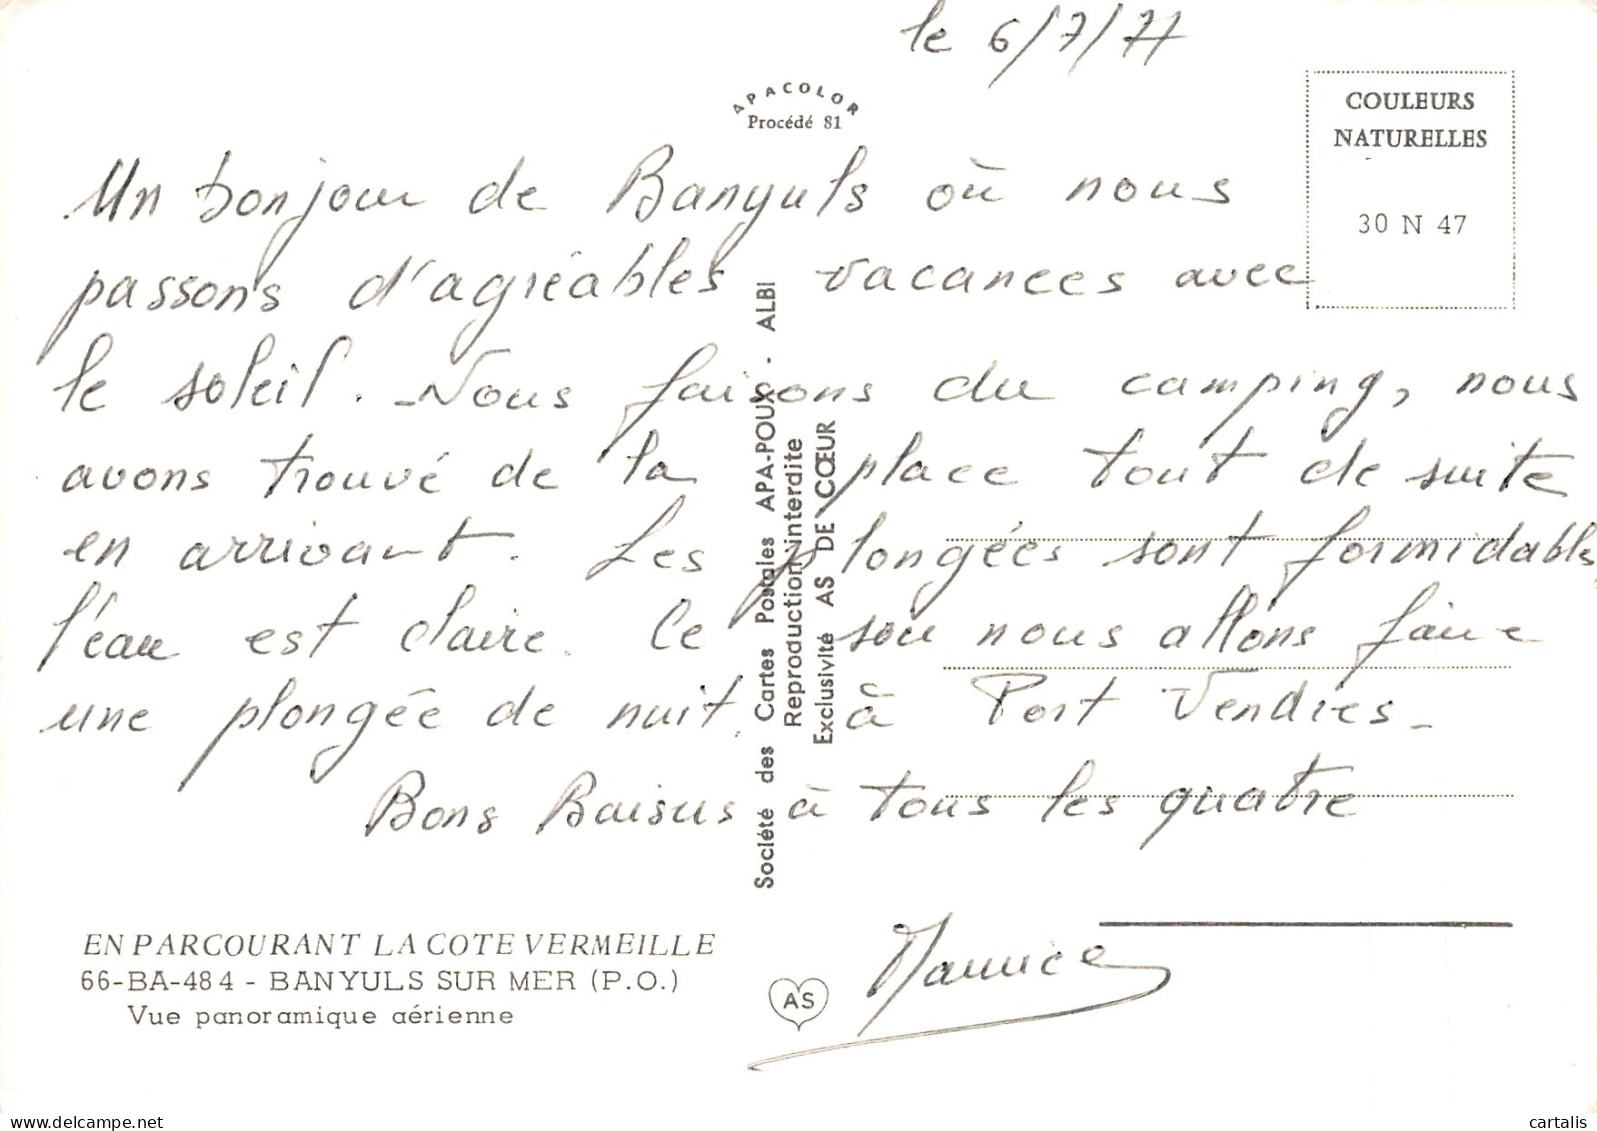 le 6/7/77
APACOLOR
Procédé 81
COULEURS
NATURELLES
30 N 47
Un bonjour de Banyuls où nous
passons d'agréables vacances avec
le soleil. - Nous faisons du camping, nous
avons trouvé de la place tout de suite
en arrivant. Les plongées sont formidables
l'eau est claire. Ce soir nous allons faire
une plongée de nuit à Port Vendres -
Bons Baisers à tous les quatre
Maurice
Société des Cartes Postales APA-POUX - ALBI
Reproduction interdite
Exclusivité AS DE CŒUR
EN PARCOURANT LA COTE VERMEILLE
66-BA-484 - BANYULS SUR MER (P.O.)
Vue panoramique aérienne
AS
cartalis